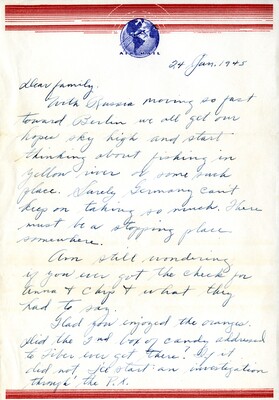 AIR MAIL
24 Jan. 1945
Dear family:
With Russia moving so fast
toward Berlin we all get our
hopes sky high and start
thinking about fishing in
Yellow river or some such
place. Surely Germany can't
keep on taking so much. There
must be a stopping place
somewhere.
Am still wondering
if you ever got the check for
Anna & & what they
had to say.
Glad you enjoyed the oranges.
Did the 2nd box of candy addressed
to ever get there? If it
did not I'll start an investigation
through the P.X.